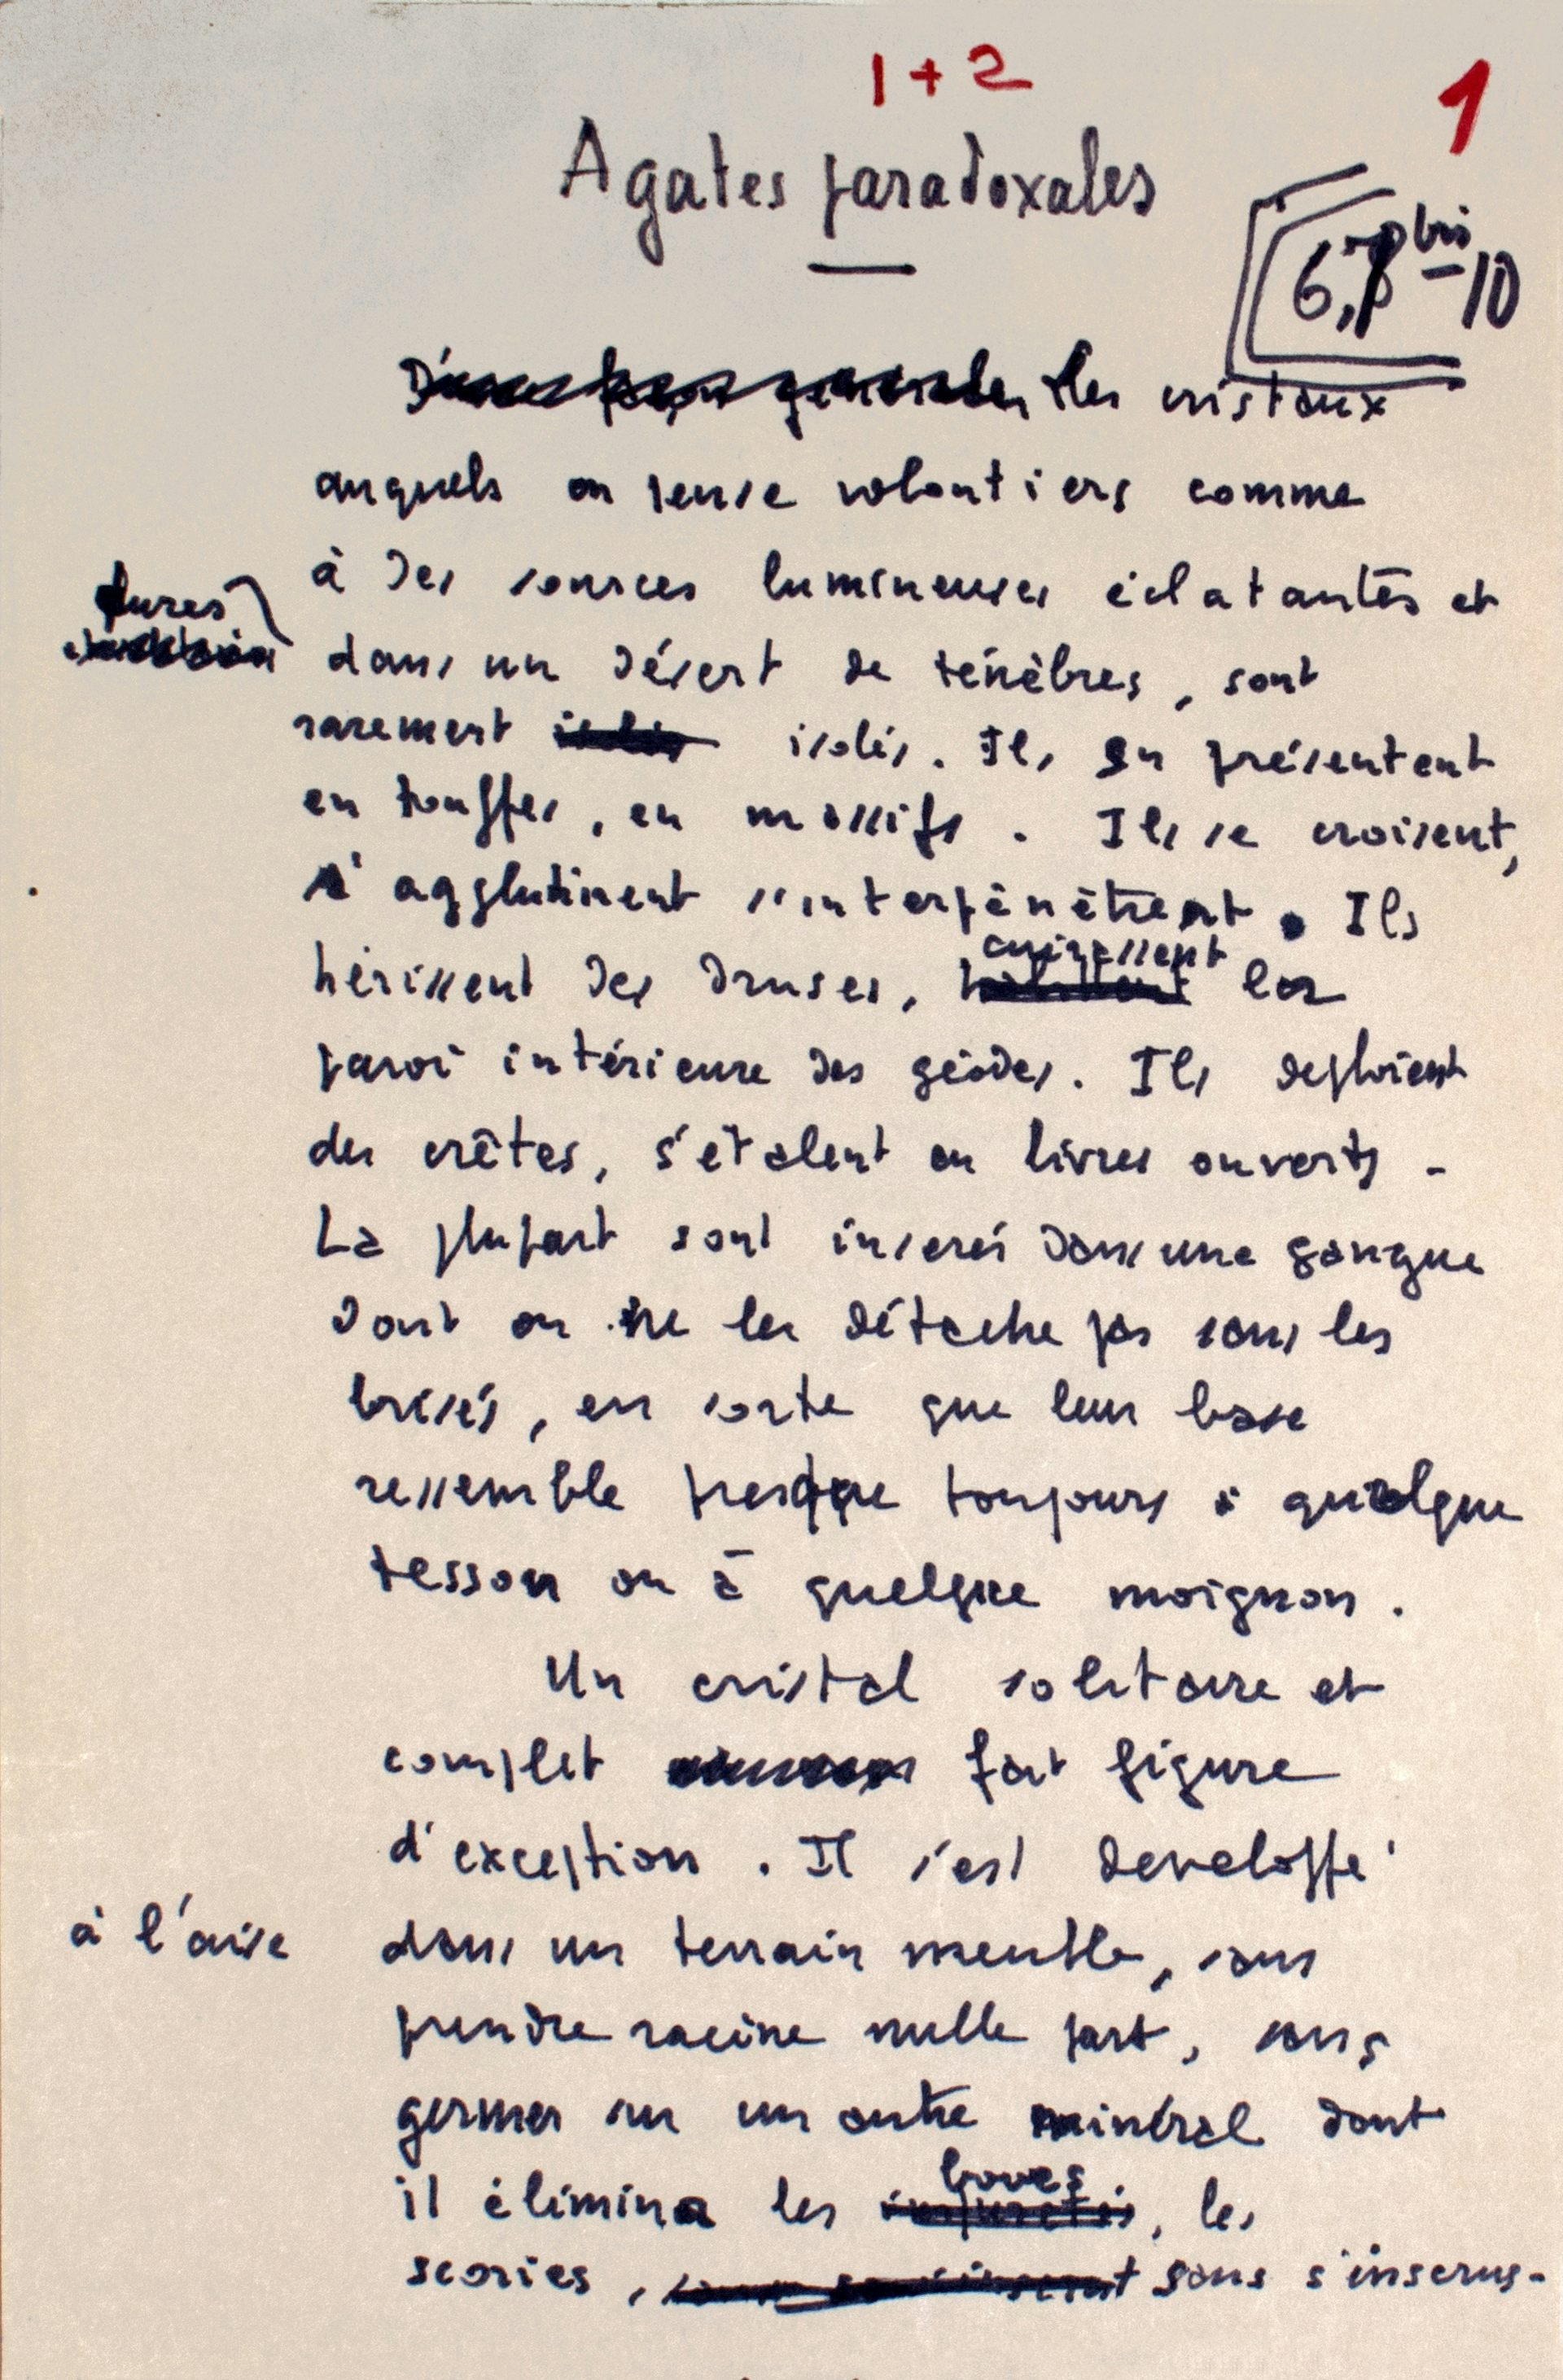 1 + 2
1
Agates paradoxales
6, bis - 10
les cristaux
auxquels on pense volontiers comme
à des sources lumineuses éclatantes et
pures
dans un désert de ténèbres, sont
rarement isolés. Ils se présentent
en touffes, en massifs. Ils se croisent,
s'agglutinent s'interpénètrent. Ils
cuirassent
hérissent des druses, habillent la
paroi intérieure des géodes. Ils deploient
des crêtes, s'étalent en livres ouverts.
La plupart sont inserés dans une gangue
dont on ne les détache pas sans les
brisés, en sorte que leur base
ressemble presque toujours à quelque
tesson ou à quelque moignon.
Un cristal solitaire et
complet fait figure
d'exception. Il s'est developpé
à l'aise
dans un terrain meuble, sans
prendre racine nulle part, sans
germer sur un autre minéral dont
boues
il élimina les impuretés, les
scories, sans s'inscrus-